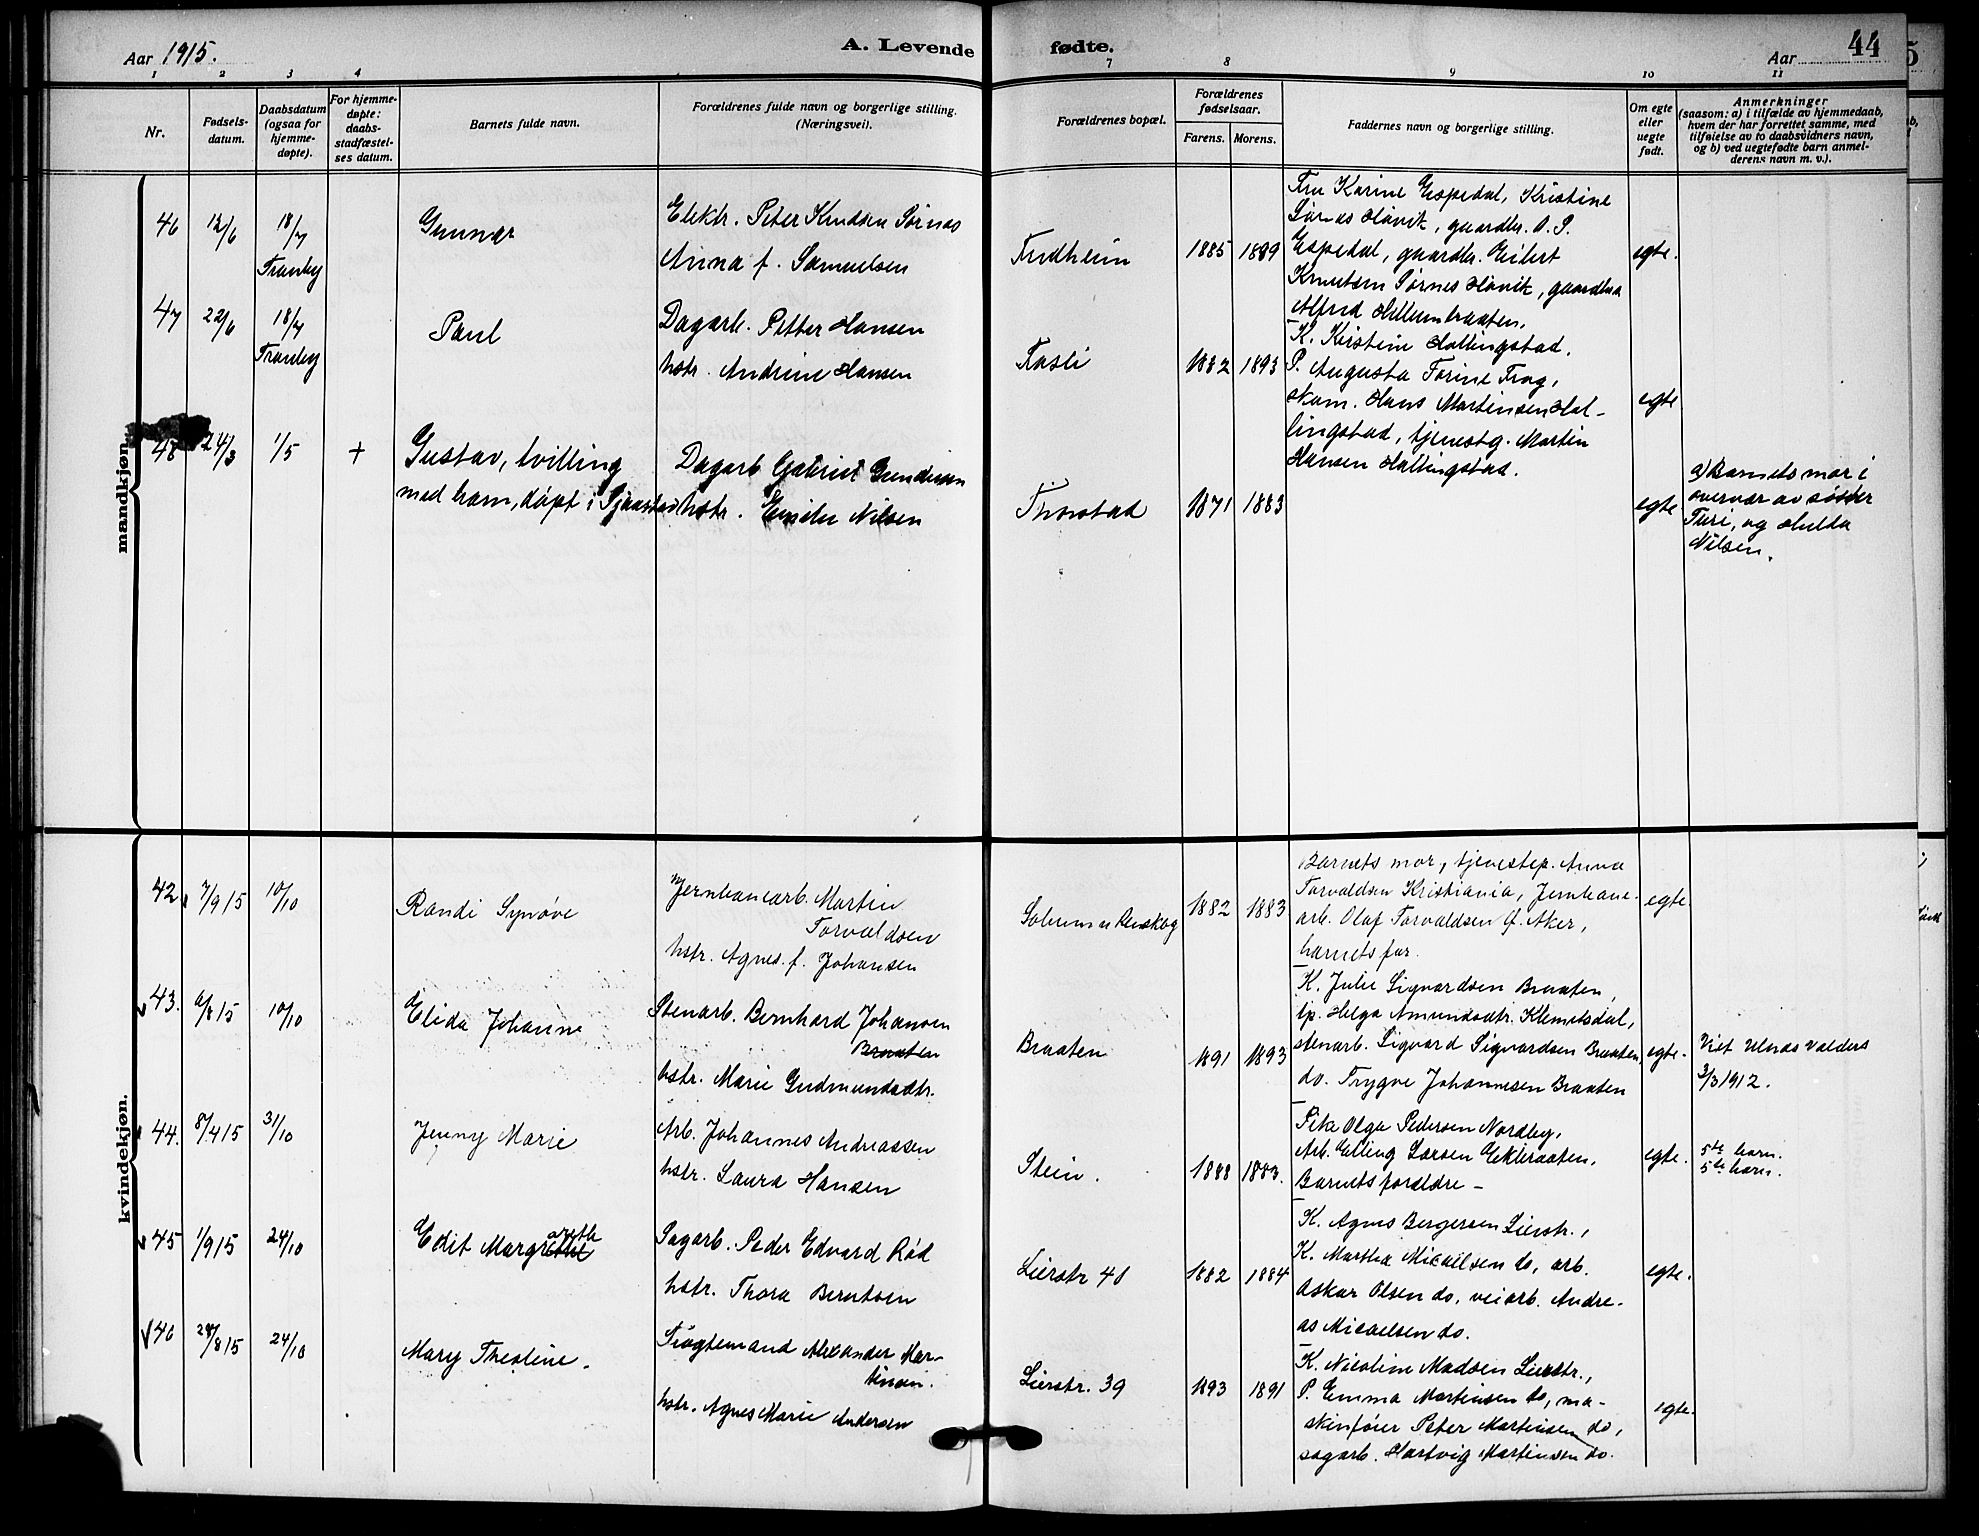 Aar 1915.
A. Levende fødte.
Aar 44
1 2 3 4 7 8 9 10 11
Nr.
Fødsels-
datum.
Daabsdatum
(ogsaa for
hjemme-
døpte).
For hjemme-
døpte:
daabs-
stadfæstel-
ses datum.
Barnets fulde navn.
Forældrenes fulde navn og borgerlige stilling.
(Næringsvei).
Forældrenes bopæl.
Forældrenes
fødselsaar.
Farens. Morens.
Faddernes navn og borgerlige stilling.
Om egte
eller
uegte
født.
Anmerkninger
(saasom: a) i tilfælde av hjemmedaab,
hvem der har forrettet samme, med
tilføielse av to daabsvidners navn,
og b) ved uegtefødte barn anmel-
derens navn m. v.).
mandkjøn.
46 12/6 18/7
Tranby
Gunnar
Elektr. Peter Knudsen Sørnes
Anna f. Samuelsen
Fredheim
1885 1889
Fru Karine Espedal, Kristine
Sørnes Høivik, gaardbr. O. S.
Espedal, gaardbr. Eilert
Knutsen Sørnes Høivik, gaardbr.
Alfred Hellumbraaten.
egte.
47 22/6 18/7
Tranby
Paul
Dagarb. Petter Hansen
hstr. Andrine Hansen
Fosli
1882 1893
K. Kirstine Hallingstad.
P. Augusta Torine Frog,
skom. Hans Martinsen Hal-
lingstad, tjenestg. Martin
Hansen Hallingstad.
egte
48 24/3 1/5 +
Gustav, tvilling
med ham, døpt i Sjaastad
Dagarb. Gabriel Gundersen
hstr. Emilie Nilsen
Thorstad
1871 1883
egte
a) Barnets mor i
overvær av søster
Turi, og Hulda
Nilsen.
kvindekjøn.
42 7/9 15 10/10
Randi Synøve
Jernbanearb. Martin
Torvaldsen
hstr. Agnes f. Johansen
1882 1883
Barnets mor, tjenestep. Anna
Torvaldsen Kristiania, Jernbane-
arb. Olaf Torvaldsen Ø. Aker,
barnets far.
egte.
43. 6/8 15 10/10
Elida Johanne
Stenarb. Bernhard Johansen
Braaten
hstr. Marie Gudmundsdtr.
Braaten
1891 1893
K. Julie Sigvardsen Braaten,
tp. Helga Amundsdtr. Klemetsdal,
stenarb. Sigvard Sigvardsen Braaten,
do. Trygve Johannesen Braaten
egte.
Viet Ulnæs Valders
3/3 1912.
44. 8/4 15 31/10
Jenny Marie
Arb. Johannes Andreassen
hstr. Laura Hansen
Stein.
1888 1883.
Pike Olga Pedersen Nordby,
Arb. Elling Larsen Ekbraaten.
Barnets forældre –
egte.
5te barn.
5te barn.
45 1/9 15 24/10
Edit Margrethe
Sagarb. Peder Edvard Rød
hstr. Thora Berntsen
Lierstr 40
1882 1884
K. Agnes Bergersen Lierstr.,
K. Martha Micaelsen do, arb.
Oskar Olsen do, veiarb. Andre-
as Micaelsen do.
egte.
46 28/8 15 24/10
Mary Theoline.
Sivgtemand Alexander Mar-
tinsen.
hstr. Agnes Marie Andersen
Lierstr. 39
1893 1891
K. Nicoline Madsen Lierstr.,
P. Emma Martinsen do, ma-
skinfører Peter Martinsen do,
sagarb. Hartvig Martinsen do.
egte.